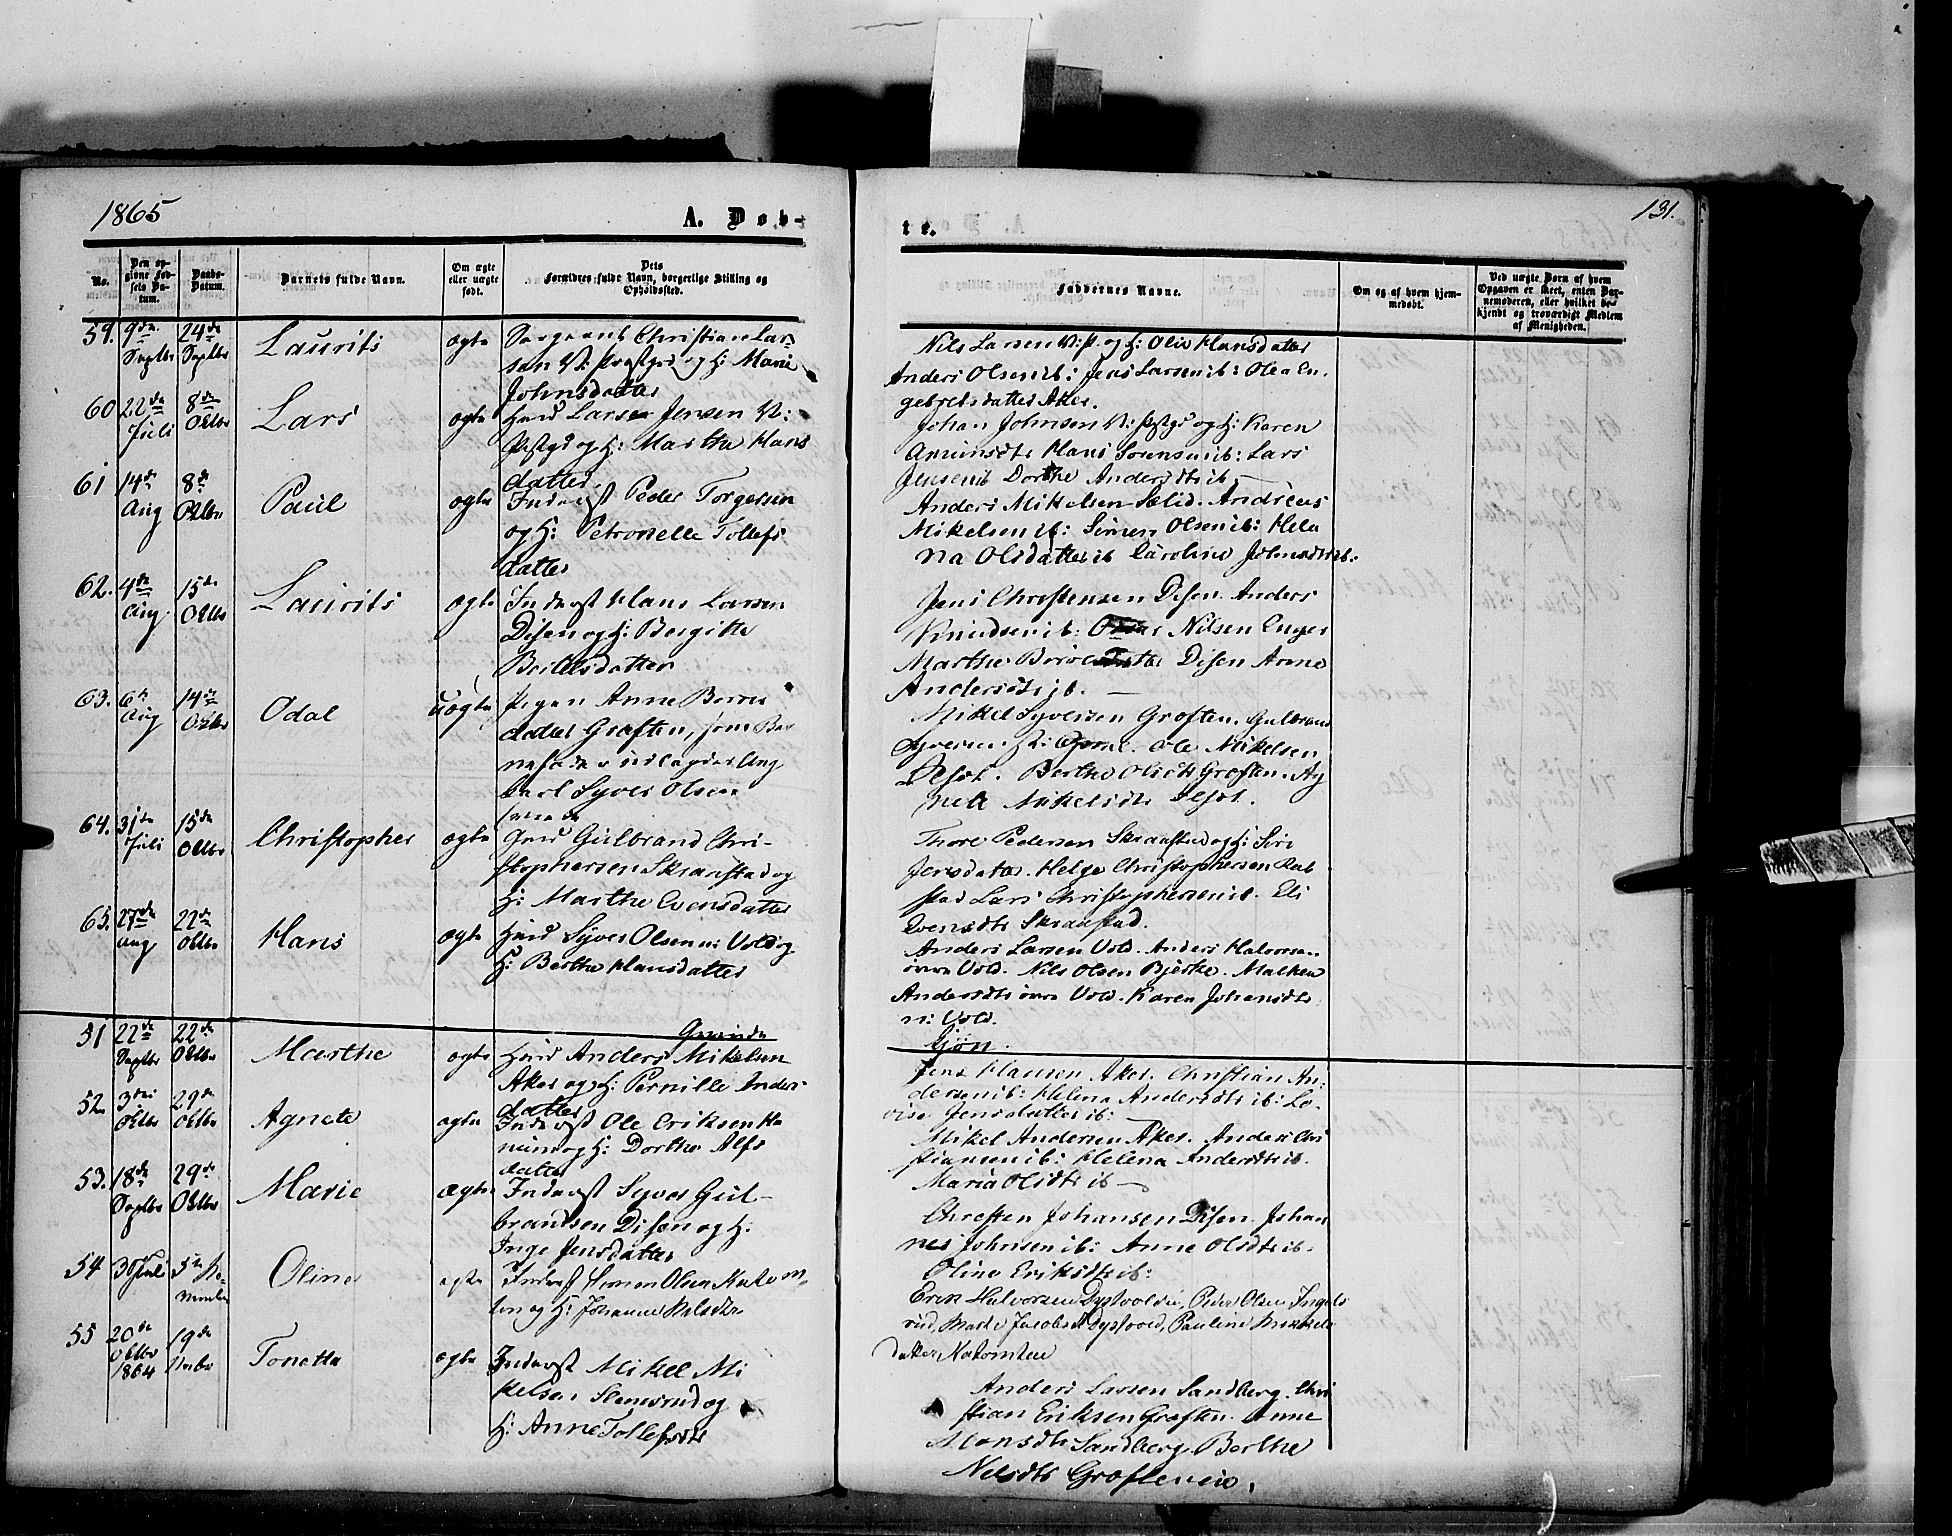 1865
A. Døb-
te.
131.
No.
Den op-
givne Fød-
sels Da-
tum.
Daabs-
Datum.
Barnets fulde Navn.
Om ægte
eller uægte
født.
Dets
Forældres fulde Navn, borgerlige Stilling og
Opholdssted.
Faddernes Navne.
Om og af hvem hjem-
medøbt.
Ved uægte Børn af hvem
Opgaven er skeet, enten Bar-
nemoderen, eller hvilket be-
kjendt og troværdigt Medlem
af Menigheden.
59. 9de Septbr 24de Septbr Laurits ægte
Sergeant Christian Lar-
sen N: og H: Marie
Johnsdatter
Nils Larsen og H: Olia Hansdatter
Anders Olsen ib: Jens Larsen ib: Olea En-
gebretsdatter Aker.
60 22de Juli 8de Oktbr Lars ægte
Huusmd Larses Jensen N:
og H: Marthe Hans
datter
Johan Johnsen N: og H: Karen
Amunsdtr Hans Sørensen ib: Lars
Jensen ib Dorthe Andersdtr ib
61 14de Aug 8de Oktbr Paul ægte
Inderst Peder Torgersen
og H: Petronelle Tollefs
datter
Anders Mikelsen Andreas
Mikelsen ib: Simen Olsen ib: Hele
na Olsdatter ib Caroline Johnsdtr ib.
62. 4de Aug 15de Oktbr Laurits ægte
Inderst Hans Larsen
Disen og H: Bergitte
datter
Jens Christensen Disen. Anders
Knudsen ib: Nilsen Enger
Marthe Disen Anne
Andersdtr ib.
63. 6te Aug 14de Oktbr Odal uægte
Pigen Anne Børres
datter Graften, som Bar
nefader udlægges Ung
karl Syver Olsen
Mikel Syversen Groften. Gulbrand
Syversen Ole Mikelsen
Berthe Olsdtr Groften. Ag
nete Mikelsdtr
64. 31te Juli 15de Oktbr Christopher ægte
Huusmd Gulbrand Chri-
stophersen Skranstad og
H: Marthe Evensdatter
Thore Pedersen Skranstad og H: Siri
Jensdatter. Helge Christophersen Rab
stad Lars Christophersen ib. Eli
Evensdtr Skranstad.
65. 27de Aug 22de Oktbr Hans ægte
Huusmd Syver Olsen n: Vold og
H: Berthe Hansdatter
Anders Larsen Vold. Anders Halvorsen
øvre Vold. Nils Olsen Bjerke. Malhea
Andersdtr øvre Vold. Karen Johansdtr
n: Vold.
Qvinde
Kjøn.
51 22de Septbr 22de Oktbr Marthe ægte
Huusmd Anders Mikelsen
Aker og H: Pernille Anders
datter
Jens Hansen Aker. Christian An-
dersen ib: Helena Andersdtr ib: Lo-
vise Jensdatter ib:
52. 3die Oktbr 29de Oktbr Agnete ægte
Inderst Ole Eriksen Ha
num og H: Dorthe Alfs
datter
Mikel Andersen Aker. Anders Chri
stiansen ib: Helena Andersdtr ib.
Maria Olsdtr ib
53. 18de Septbr 29de Oktbr Marie ægte
Inderst Syver Gul-
brandsen Disen og H:
Inge Jensdatter
Christen Johansen Disen. Johan
nes Johnsen ib: Anne Olsdtr ib.
Oline Eriksdtr ib:
54 30 Juli 5te No-
vember Oline ægte
Inderst Simen Olsen
og H: Johanne
Erik Halvorsen Dystvold, Peder Olsen Ingels
rud, Marte Jacobsd Dystvold, Pauline Mikkels
datter
55 20de Oktbr 1864 19de Novbr Tonetta ægte
Inderst Mikel Mi
kelsen og
H: Anne Tollefsdtr
Anders Larsen Sandberg. Chri
stian Eriksen Groften. Anne
Monsdtr Sandberg. Berthe
Nelsdtr Grofteneie.